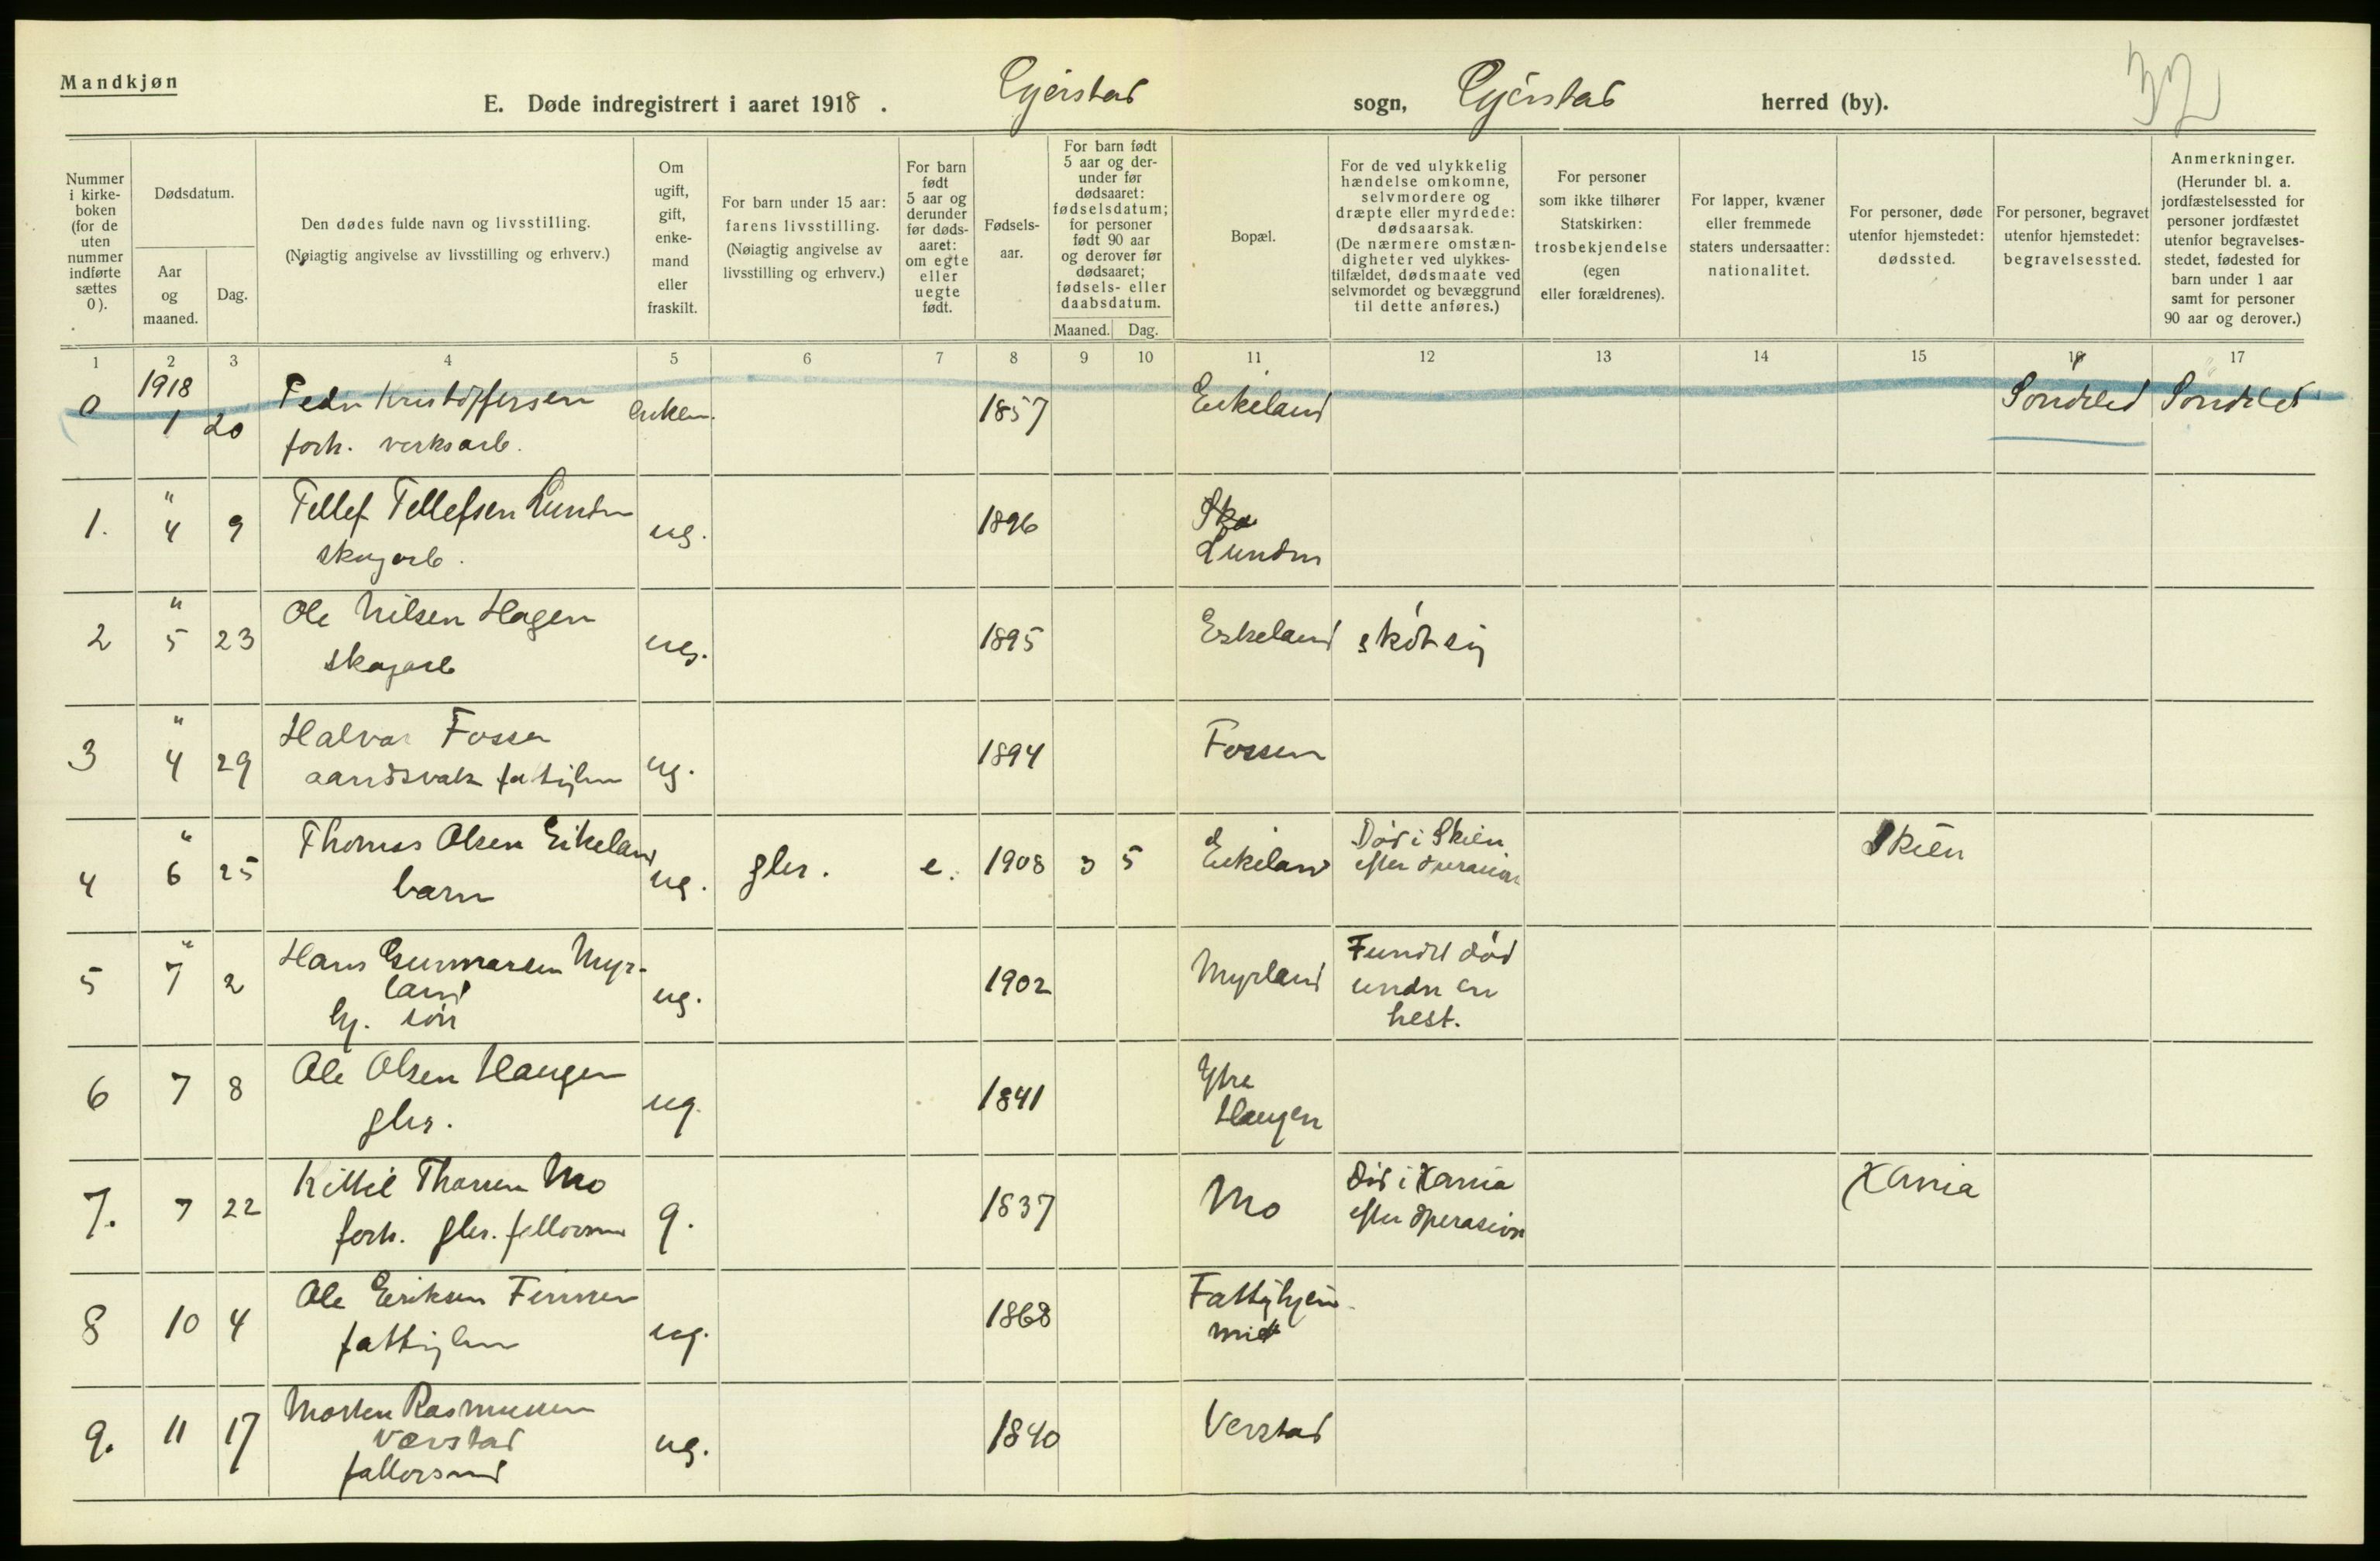 Mandkjøn
E. Døde indregistrert i aaret 1918. Gjerstad sogn, Gjerstad herred (by).
32
Nummer i kirke-boken (for de uten nummer indførte sættes 0).
Dødsdatum.
Aar og maaned.
Dag.
Den dødes fulde navn og livsstilling.
(Nøiagtig angivelse av livsstilling og erhverv.)
Om ugift, gift, enke-mand eller fraskilt.
For barn under 15 aar: farens livsstilling. (Nøiagtig angivelse av livsstilling og erhverv.)
For barn født 5 aar og derunder før døds-aaret: om egte eller uegte født.
Fødsels-aar.
For barn født 5 aar og der-under før dødsaaret: fødselsdatum; for personer født 90 aar og derover før dødsaaret; fødsels- eller daabsdatum.
Maaned. Dag.
Bopæl.
For de ved ulykkelig hændelse omkomne, selvmordere og dræpte eller myrdede: dødsaarsak. (De nærmere omstæn-digheter ved ulykkes-tilfældet, dødsmaate ved selvmordet og bevæggrund til dette anføres.)
For personer som ikke tilhører Statskirken: trosbekjendelse (egen eller forældrenes).
For lapper, kvæner eller fremmede staters undersaatter: nationalitet.
For personer, døde utenfor hjemstedet: dødssted.
For personer, begravet utenfor hjemstedet: begravelsessted.
Anmerkninger. (Herunder bl. a. jordfæstelsessted for personer jordfæstet utenfor begravelses-stedet, fødested for barn under 1 aar samt for personer 90 aar og derover.)
1 2 3 4 5 6 7 8 9 10 11 12 13 14 15 16 17
1918
0 1 20 Peder Kristoffersen enkem. 1857 Eikeland Söndeled Söndeled
forh. verksarb.
1. " 4 9 Tellef Tellefsen Lunden ug. 1896 Ska Lunden
skogarb.
2 " 5 23 Ole Nilsen Hagen ug. 1895 Eskeland sköt sig
skogarb
3 " 4 29 Halvor Fossen ug. 1894 Fossen
aandsvak fattiglem
4 " 6 25 Thomas Olsen Eikeland ug. gbr. e. 1908 3 5 Eikeland Död i Skien efter operasion Skien
barn
5 " 7 2 Hans Gunnarsen Myr-land ug. 1902 Myrland Fundet död under en hest.
hj. sön
6 7 8 Ole Olsen Haugen ug. 1841 Ytre Haugen
gbr.
7. 7 22 Kittil Thorsen Mo g. 1837 Mo död i Xania efter operasion Xania
forh. gbr.
8 10 4 Ole Eriksen Finnen ug. 1868 Fattighjem-met
fattiglem
9. 11 17 Morten Rasmussen ug. 1840 Verstad
Værstad